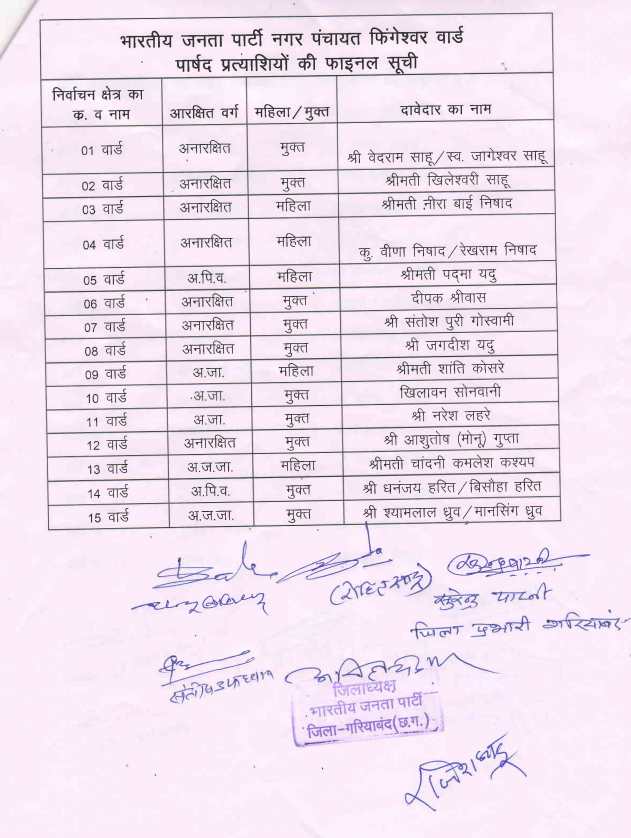 भारतीय जनता पार्टी नगर पंचायत फिंगेश्वर वार्ड
पार्षद प्रत्याशियों की फाइनल सूची
निर्वाचन क्षेत्र का
क. व नाम आरक्षित वर्ग महिला/मुक्त दावेदार का नाम
01 वार्ड अनारक्षित मुक्त श्री वेदराम साहू/स्व. जागेश्वर साहू
02 वार्ड अनारक्षित मुक्त श्रीमती खिलेश्वरी साहू
03 वार्ड अनारक्षित महिला श्रीमती नीरा बाई निषाद
04 वार्ड अनारक्षित महिला कु. वीणा निषाद/रेखराम निषाद
05 वार्ड अ.पि.व. महिला श्रीमती पद्मा यदु
06 वार्ड अनारक्षित मुक्त दीपक श्रीवास
07 वार्ड अनारक्षित मुक्त श्री संतोश पुरी गोस्वामी
08 वार्ड अनारक्षित मुक्त श्री जगदीश यदु
09 वार्ड अ.जा. महिला श्रीमती शांति कोसरे
10 वार्ड अ.जा. मुक्त खिलावन सोनवानी
11 वार्ड अ.जा. मुक्त श्री नरेश लहरे
12 वार्ड अनारक्षित मुक्त श्री आशुतोष (मोनू) गुप्ता
13 वार्ड अ.ज.जा. महिला श्रीमती चांदनी कमलेश कश्यप
14 वार्ड अ.पि.व. मुक्त श्री धनंजय हरित/बिसौहा हरित
15 वार्ड अ.ज.जा. मुक्त श्री श्यामलाल ध्रुव/मानसिंग ध्रुव
जिला प्रभारी गरियाबंद
जिलाध्यक्ष
भारतीय जनता पार्टी
जिला-गरियाबंद(छ.ग.)